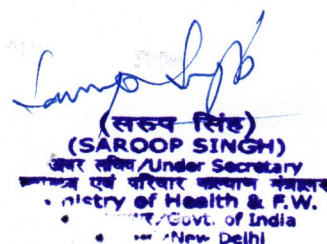 (सरुप सिंह)
(SAROOP SINGH)
अवर सचिव/Under Secretary
एवं परिवार कल्याण मंत्रालय
nistry of Health & F.W.
Govt. of India
New Delhi